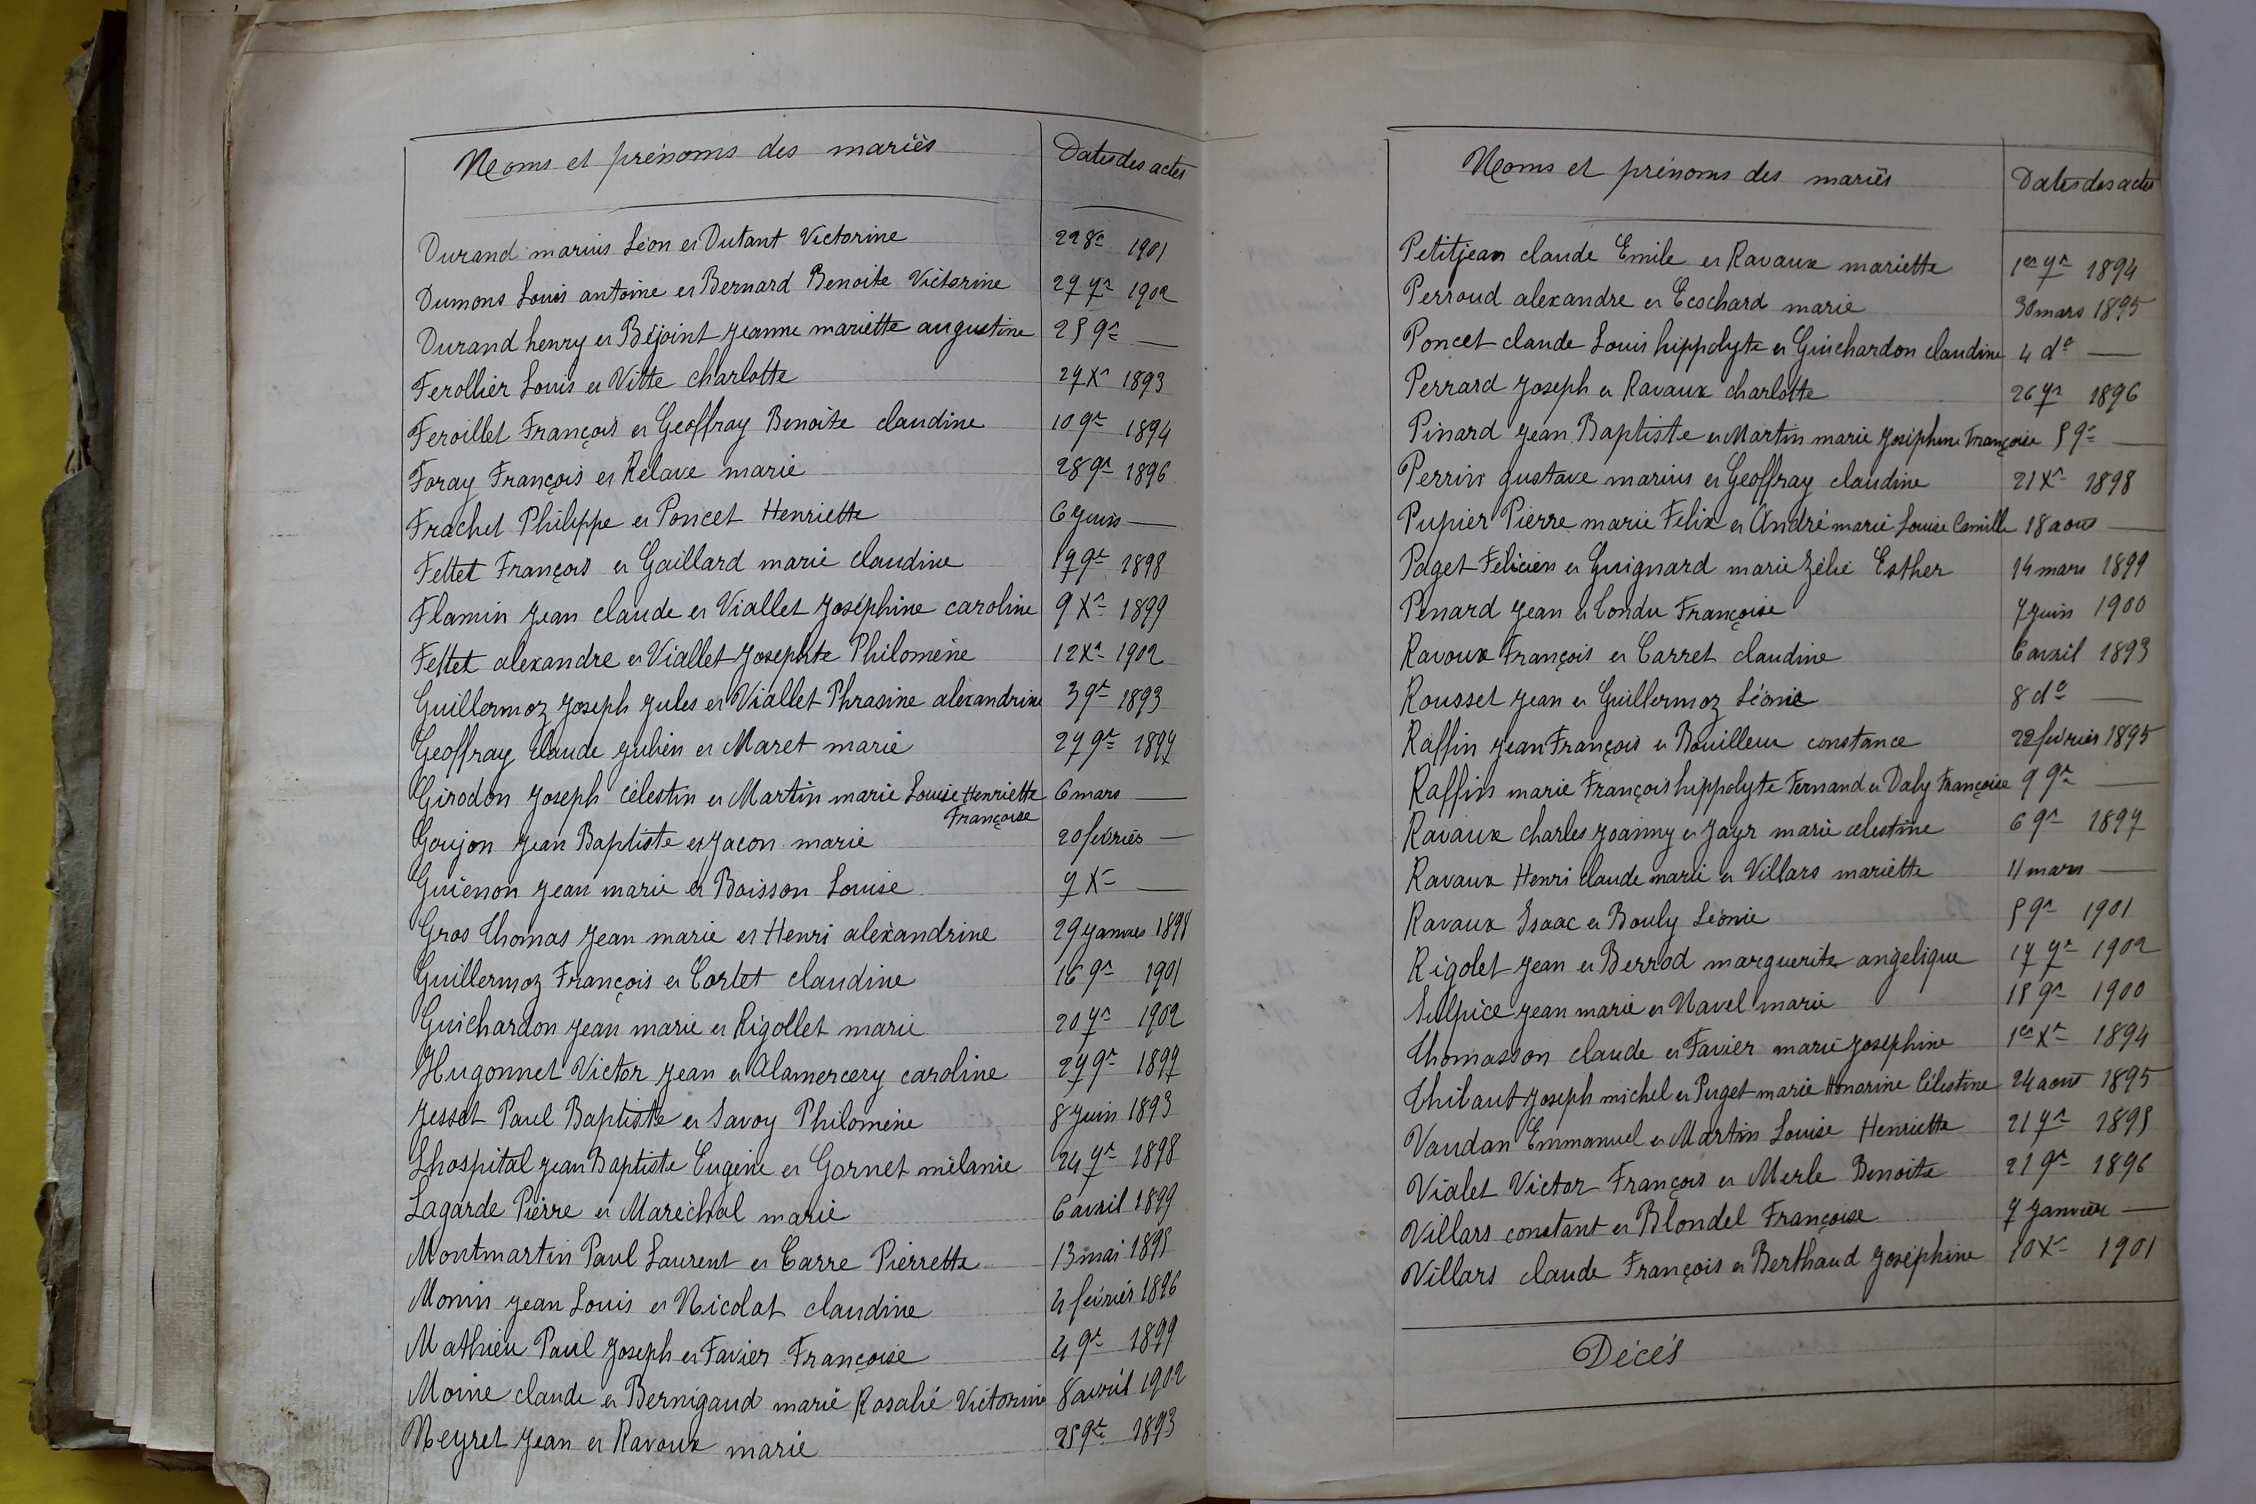 Noms et prénoms des mariés Dates des actes
Durand marius Léon et Dutant Victorine 22 8e 1901
Dumons Louis antoine et Bernard Benoite Victorine 27 7re 1902
Durand henry et Béjoint Jeanne mariette augustine 25 9re —
Ferollier Louis et Vitte charlotte 27 Xre 1893
Feroillet François et Geoffray Benoite claudine 10 9re 1894
Foray François et Relave marie 28 9re 1896
Frachet Philippe et Poncet Henriette 6 Juin —
Fettet François et Gaillard marie claudine 17 9re 1898
Flamin Jean claude et Viallet Joséphine caroline 9 Xre 1899
Fettet alexandre et Viallet Josephte Philomène 12 Xre 1902
Guillermoz Joseph Jules et Viallet Phrasine alexandrine 3 9re 1893
Geoffray Claude Julien et Maret marie 27 9re 1897
Girodon Joseph Célestin et Martin marie Louise Henriette 6 mars —
Françoise
Goujon Jean Baptiste et Jacon marie 20 février —
Guienon Jean marie et Boisson Louise 7 Xre —
Gros Thomas Jean marie et Henri alexandrine 29 Janvier 1898
Guillermoz François et Cortet claudine 16 9re 1901
Guichardon Jean marie et Rigollet marie 20 7re 1902
Hugonnet Victor Jean et Alamercery caroline 27 9re 1897
Jesset Paul Baptiste et Savoy Philomène 8 Juin 1893
Lhospital Jean Baptiste Eugène et Gornet mélanie 24 7re 1898
Lagarde Pierre et Maréchal marie 6 avril 1899
Montmartin Paul Laurent et Carre Pierrette 13 mai 1895
Monin Jean Louis et Nicolat claudine 4 février 1896
Mathieu Paul Joseph et Favier Françoise 4 9re 1899
Moine claude et Bernigaud marie Rosalie Victorine 8 avril 1902
Neyret Jean et Ravoux marie 25 9re 1893
Noms et prénoms des mariés Dates des actes
Petitjean claude Emile et Ravaux mariette 1er 7re 1894
Perroud alexandre et Ecochard marie 30 mars 1895
Poncet claude Louis hippolyte et Guichardon claudine 4 do —
Perrard Joseph et Ravaux charlotte 26 7re 1896
Pinard Jean Baptiste et Martin marie Joséphine Françoise 5 9re —
Perrin gustave marius et Geoffray claudine 21 Xre 1898
Pupier Pierre marie Felix et André marie Louise Camille 18 aout —
Paget Félicien et Guignard marie Zélie Esther 14 mars 1899
Penard Jean et Condu Françoise 7 Juin 1900
Ravoux François et Carret claudine 6 avril 1893
Rousset Jean et Guillermoz Léonie 8 do —
Raffin Jean François et Bouilleur constance 22 février 1895
Raffin marie François hippolyte Fernand et Daly Françoise 9 9re —
Ravaux charles Joanny et Jayr marie celestine 6 9re 1897
Ravaux Henri claude marie et Villars mariette 11 mars —
Ravaux Isaac et Bouly Léonie 5 9re 1901
Rigolet Jean et Berrod marguerite angélique 17 7re 1902
Sulpice Jean marie et Navel marie 15 9re 1900
Thomasson claude et Favier marie Joséphine 1er Xre 1894
Thibaut Joseph michel et Puget marie Honorine Célestine 24 aout 1895
Vaudan Emmanuel et Martin Louise Henriette 21 7re 1895
Vialet Victor François et Merle Benoite 21 9re 1896
Villars constant et Blondel Françoise 7 Janvier —
Villars claude François et Berthaud Joséphine 10 Xre 1901
Décès